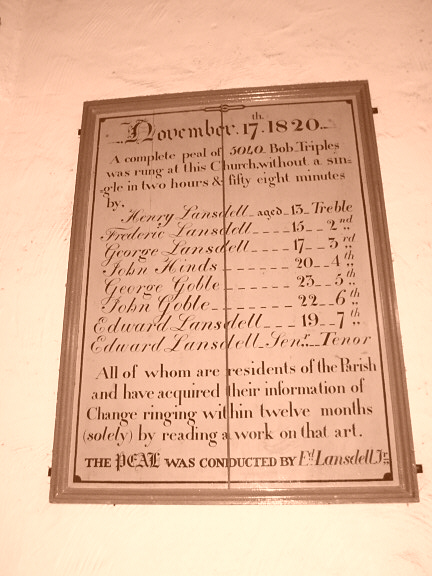 November. 17.th 1820.
A complete peal of 5040 Bob Triples
was rung at this Church, without a sin-
-gle in two hours & fifty eight minutes
by.
Henry Lansdell aged 13 Treble
Frederic Lansdell 15 2nd
George Lansdell 17 3rd
John Hinds 20 4th
George Goble 23 5th
John Goble 22 6th
Edward Lansdell 19 7th
Edward Lansdell Senr. Tenor
All of whom are residents of the Parish
and have acquired their information of
Change ringing within twelve months
(solely) by reading a work on that art.
THE PEAL WAS CONDUCTED BY Ed. Lansdell Jr.